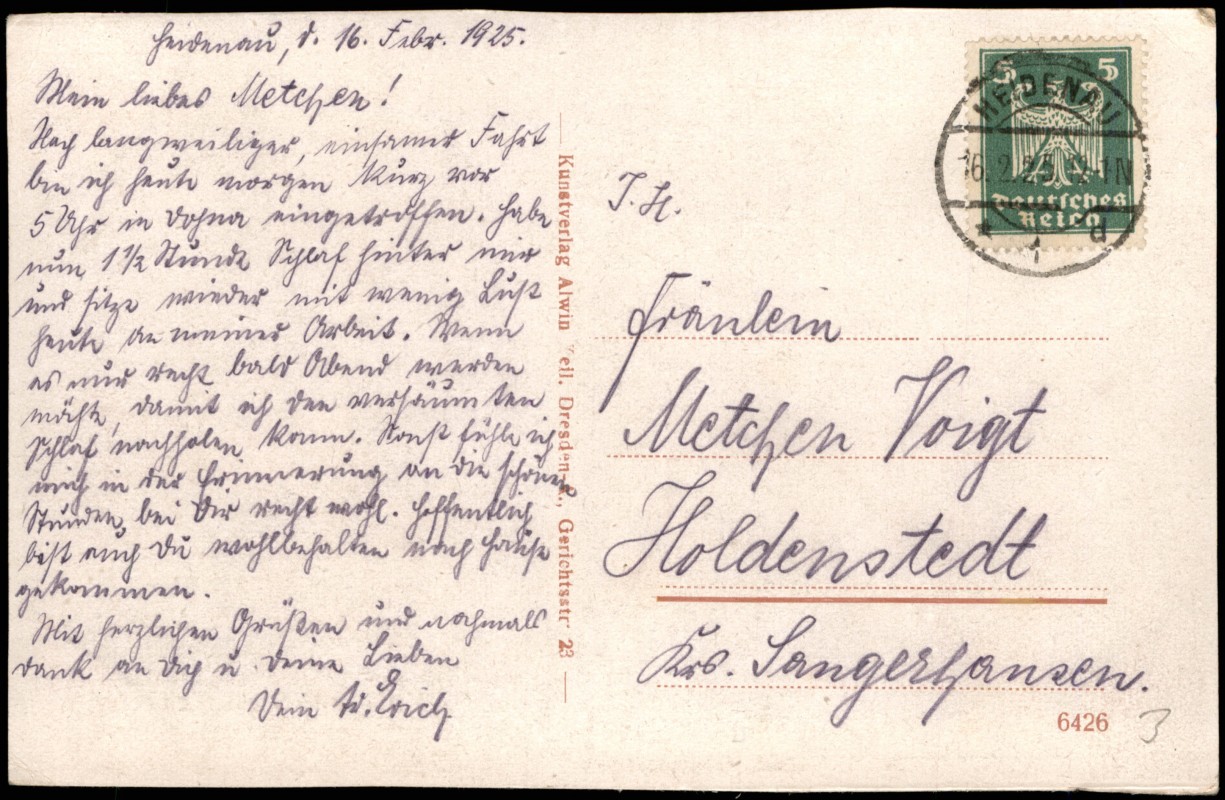 Heidenau, d. 16. Febr. 1925.
Mein liebes Metchen!
Nach langweiliger, einsamer Fahrt
bin ich heute morgen kurz vor
5 Uhr in Dohna eingetroffen. Habe
nun 1 1/2 Stunde Schlaf hinter mir
und sitze wieder mit wenig Lust
heute an meiner Arbeit. Wenn
es nur recht bald Abend werden
möchte, damit ich den versäumten
Schlaf nachholen kann. Sonst fühle ich
mich in der Erinnerung an die schönen
Stunden bei Dir recht wohl. Hoffentlich
bist auch Du wohlbehalten nach Hause
gekommen.
Mit herzlichen Grüßen und nochmals
Dank an Dich u. Deine Lieben
Dein Erich
Kunstverlag Alwin Keil, Dresden-A., Gerichtsstr. 23
5 5
Deutsches
Reich
HEIDENAU
16.2.25. 12-1N
* 1 B
I. H.
Fräulein
Metchen Voigt
Holdenstedt
Krs. Sangerhausen.
6426
3